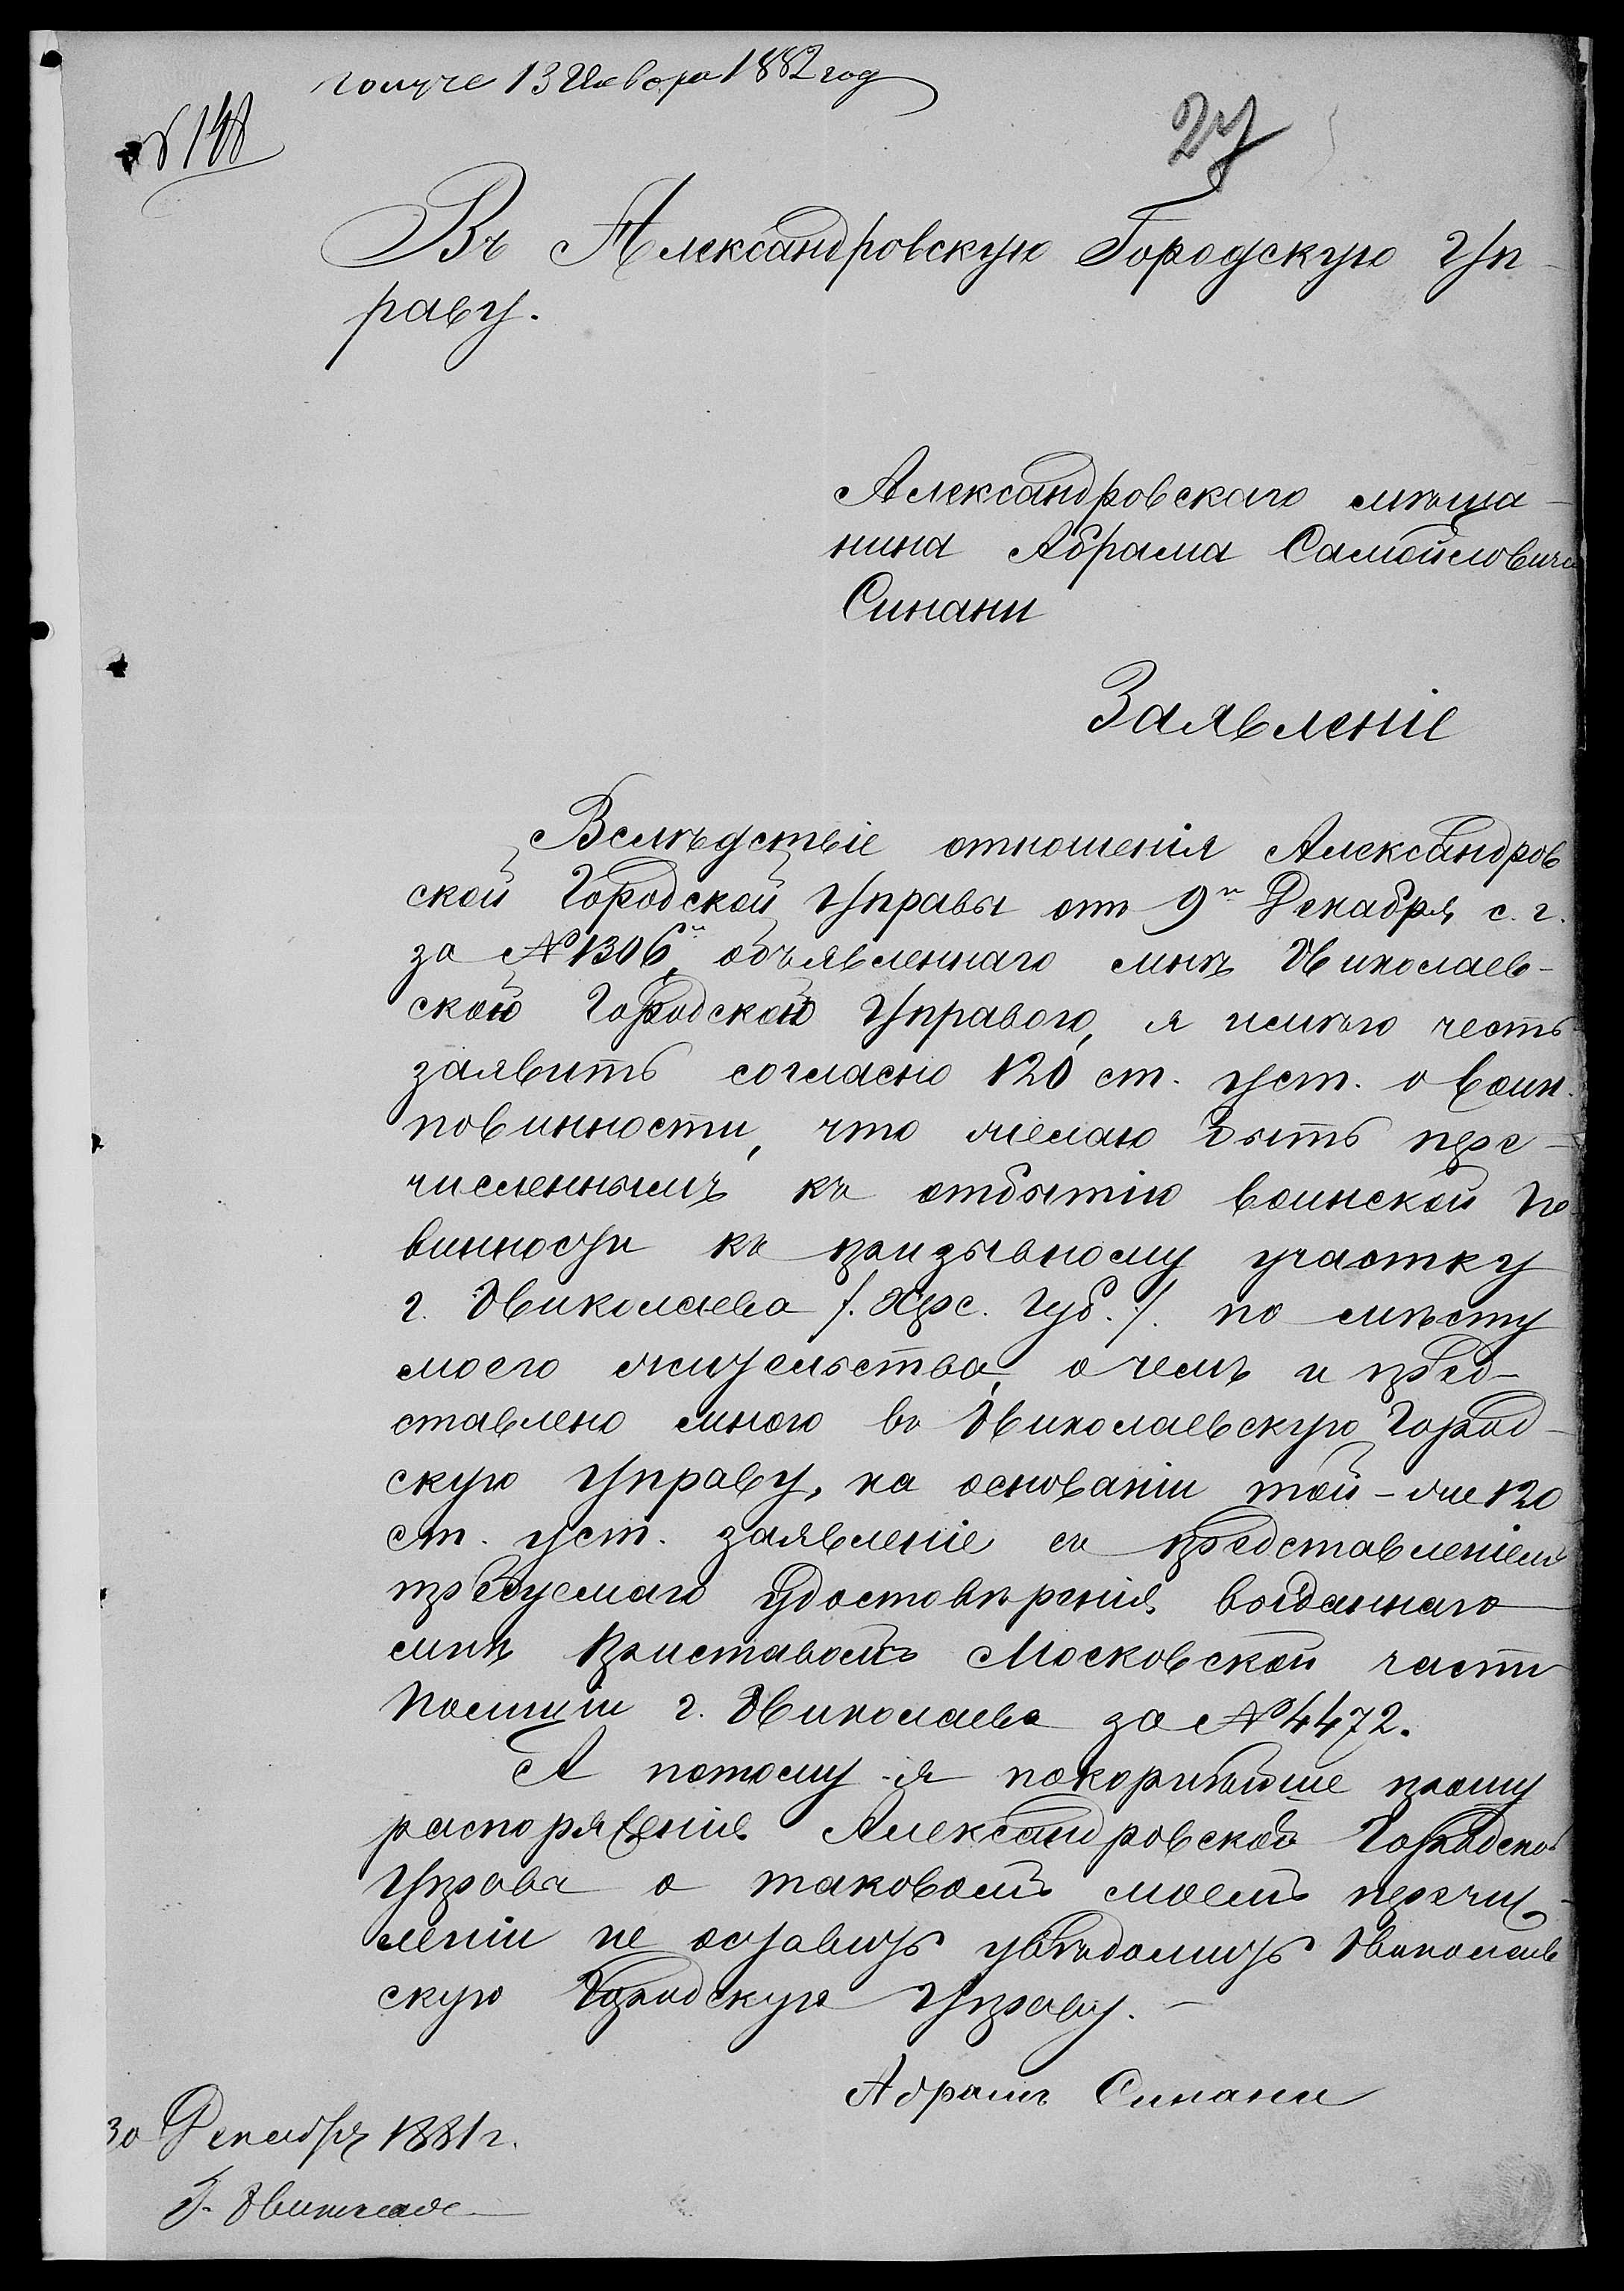 получе 13 Января 1882 год
№ 148
27
Въ Александровскую Городскую Уп-
раву.
Александровскаго мѣща-
нина Абрама Самойловича
Синани
Заявленіе
Вслѣдствіе отношенія Александров
ской Городской Управы отъ 9го Декабря с. г.
за № 1306, объявленнаго мнѣ Николаев-
скою Городскою Управою, я имѣю честь
заявить согласно 120 ст. уст. о воин.
повинности, что желаю быть пере-
численнымъ къ отбытію воинской по
винности къ призывному участку
г. Николаева /. Херс. Губ. /. по мѣсту
моего жительства, о чемъ и пред-
ставлено мною въ Николаевскую Город-
скую Управу, на основаніи той-же 120
ст. уст. заявленіе съ представленіемъ
требуемаго удостовѣренія выданнаго
мнѣ Приставомъ Московской части
Полиціи г. Николаева за № 4472.
А потому я покорнѣйше прошу
распоряженія Александровской Городской
Управы о таковомъ моемъ перечис-
леніи не оставить увѣдомить Николаев
скую Городскую Управу. —
Абрамъ Синани
30 Декабря 1881 г.
Г. Николаевъ